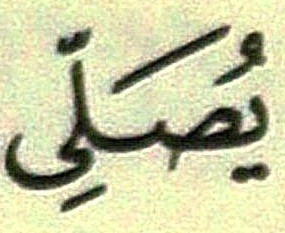 يُصَلِّي